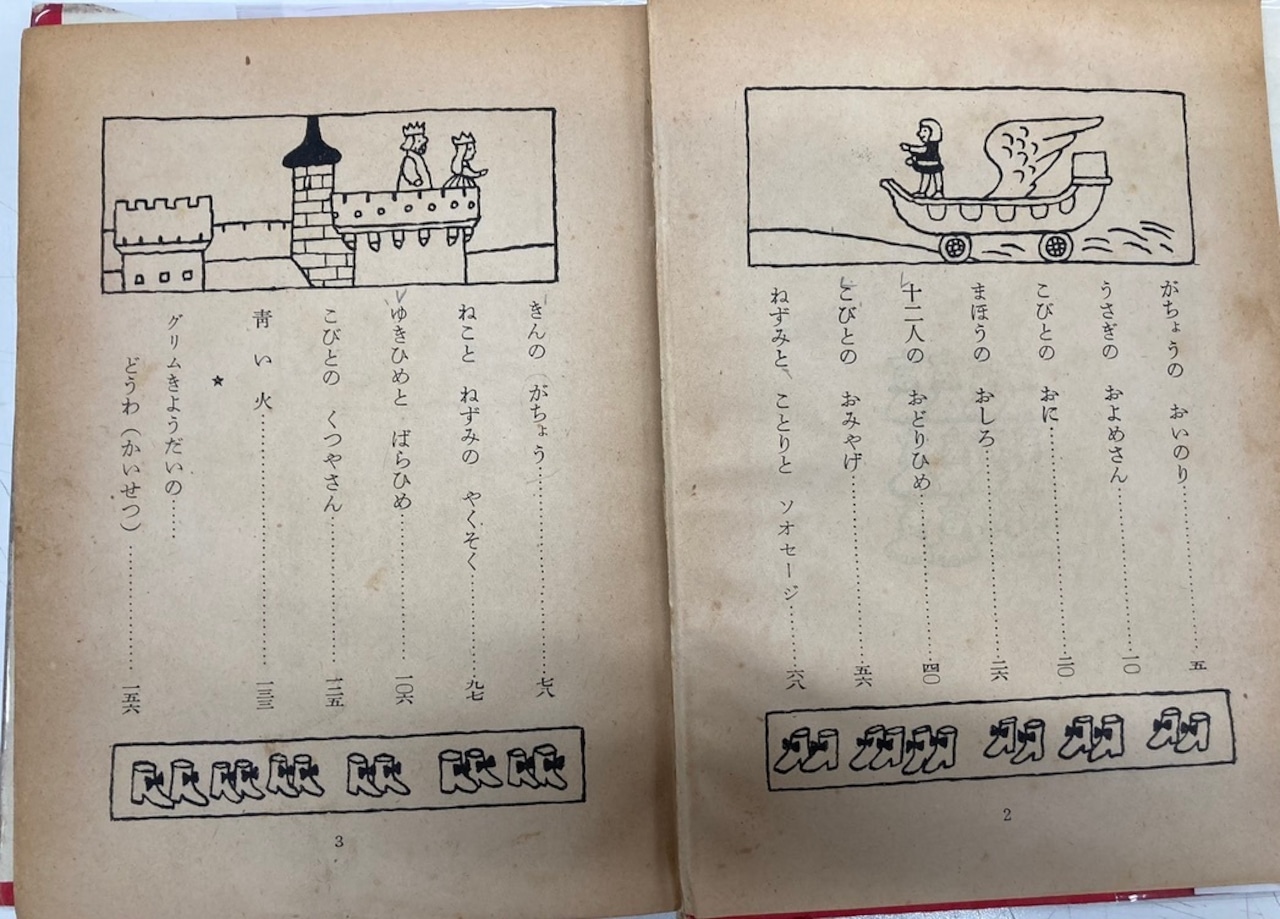 がちょうの おいのり……五
うさぎの およめさん……一〇
こびとの おに……二〇
まほうの おしろ……二六
十二人の おどりひめ……四〇
こびとの おみやげ……五六
ねずみと、ことりと ソオセージ……六八
2
きんの がちょう……七八
ねこと ねずみの やくそく……九七
ゆきひめと ばらひめ……一〇六
こびとの くつやさん……一二五
靑い火……一三三
★
グリムきようだいの……
どうわ（かいせつ）……一五六
3